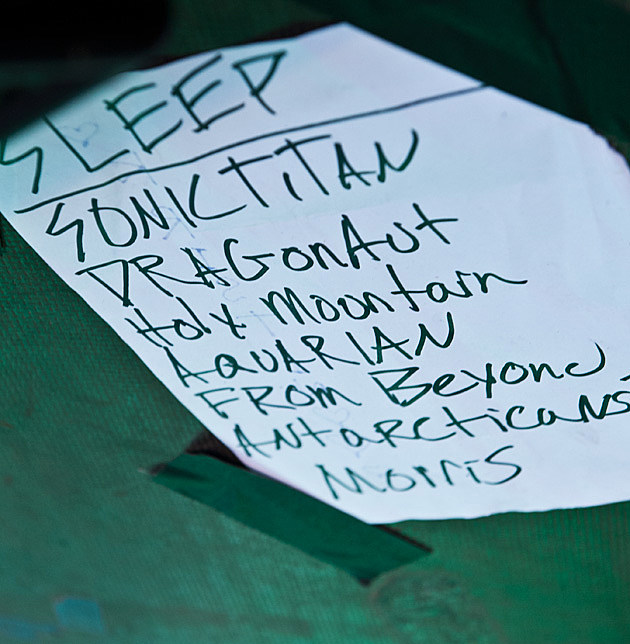 SLEEP
SONICTITAN
DRAGonAut
Holy Mountain
AQUARIAN
FROM BeYonD
ANtaRCticaNS
Morris